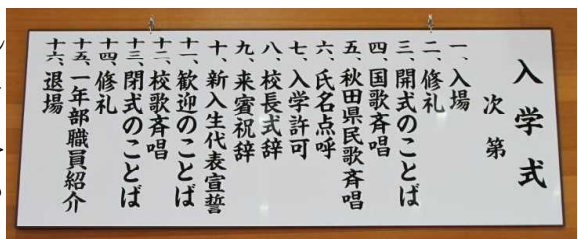 入学式
次第
一、入場
二、修礼
三、開式のことば
四、国歌斉唱
五、秋田県民歌斉唱
六、氏名点呼
七、入学許可
八、校長式辞
九、来賓祝辞
十、新入生代表宣誓
十一、歓迎のことば
十二、校歌斉唱
十三、閉式のことば
十四、修礼
十五、一年部職員紹介
十六、退場